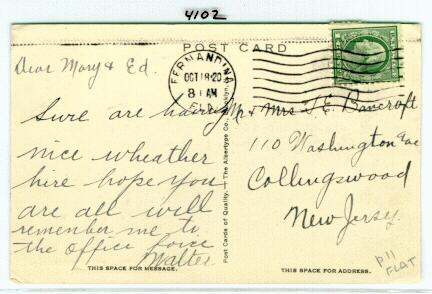 4102
POST CARD
FERNANDINA
OCT 18-20
8 AM
FLA.
Dear Mary & Ed.
Sure are having
nice wheather
hire hope you
are all will
remember me to
the office force
Walter
THIS SPACE FOR MESSAGE.
Post Cards of Quality. — The Albertype Co., Brooklyn,
Mr & Mrs J. E. Bancroft
110 Washington Ave
Collingswood
New Jersy.
THIS SPACE FOR ADDRESS.
P11
FLAT